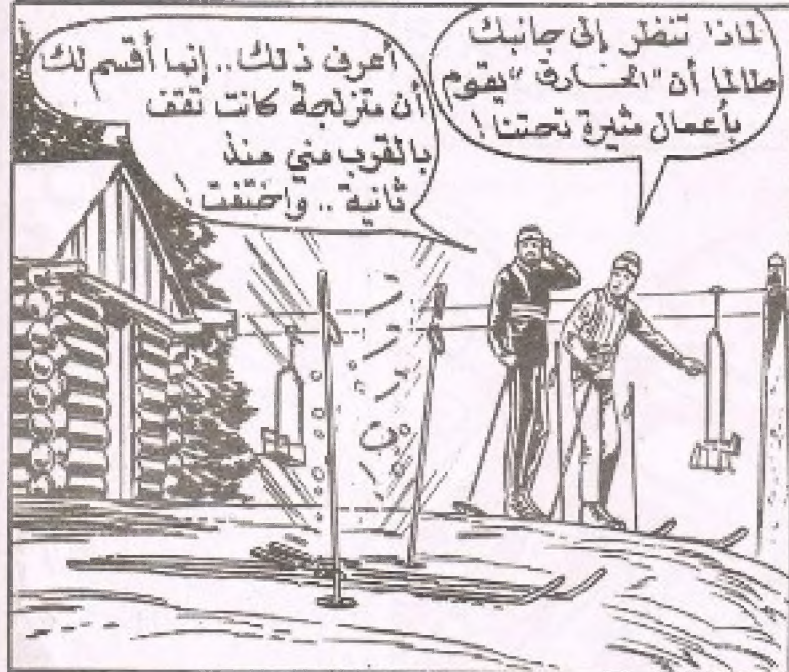 لماذا تنظر إلى جانبك
طالما أن "الخارق" يقوم
بأعمال مثيرة تحتنا!
أعرف ذلك.. إنما أقسم لك
أن متزلجة كانت تقف
بالقرب مني منذ
ثانية.. واختفت!